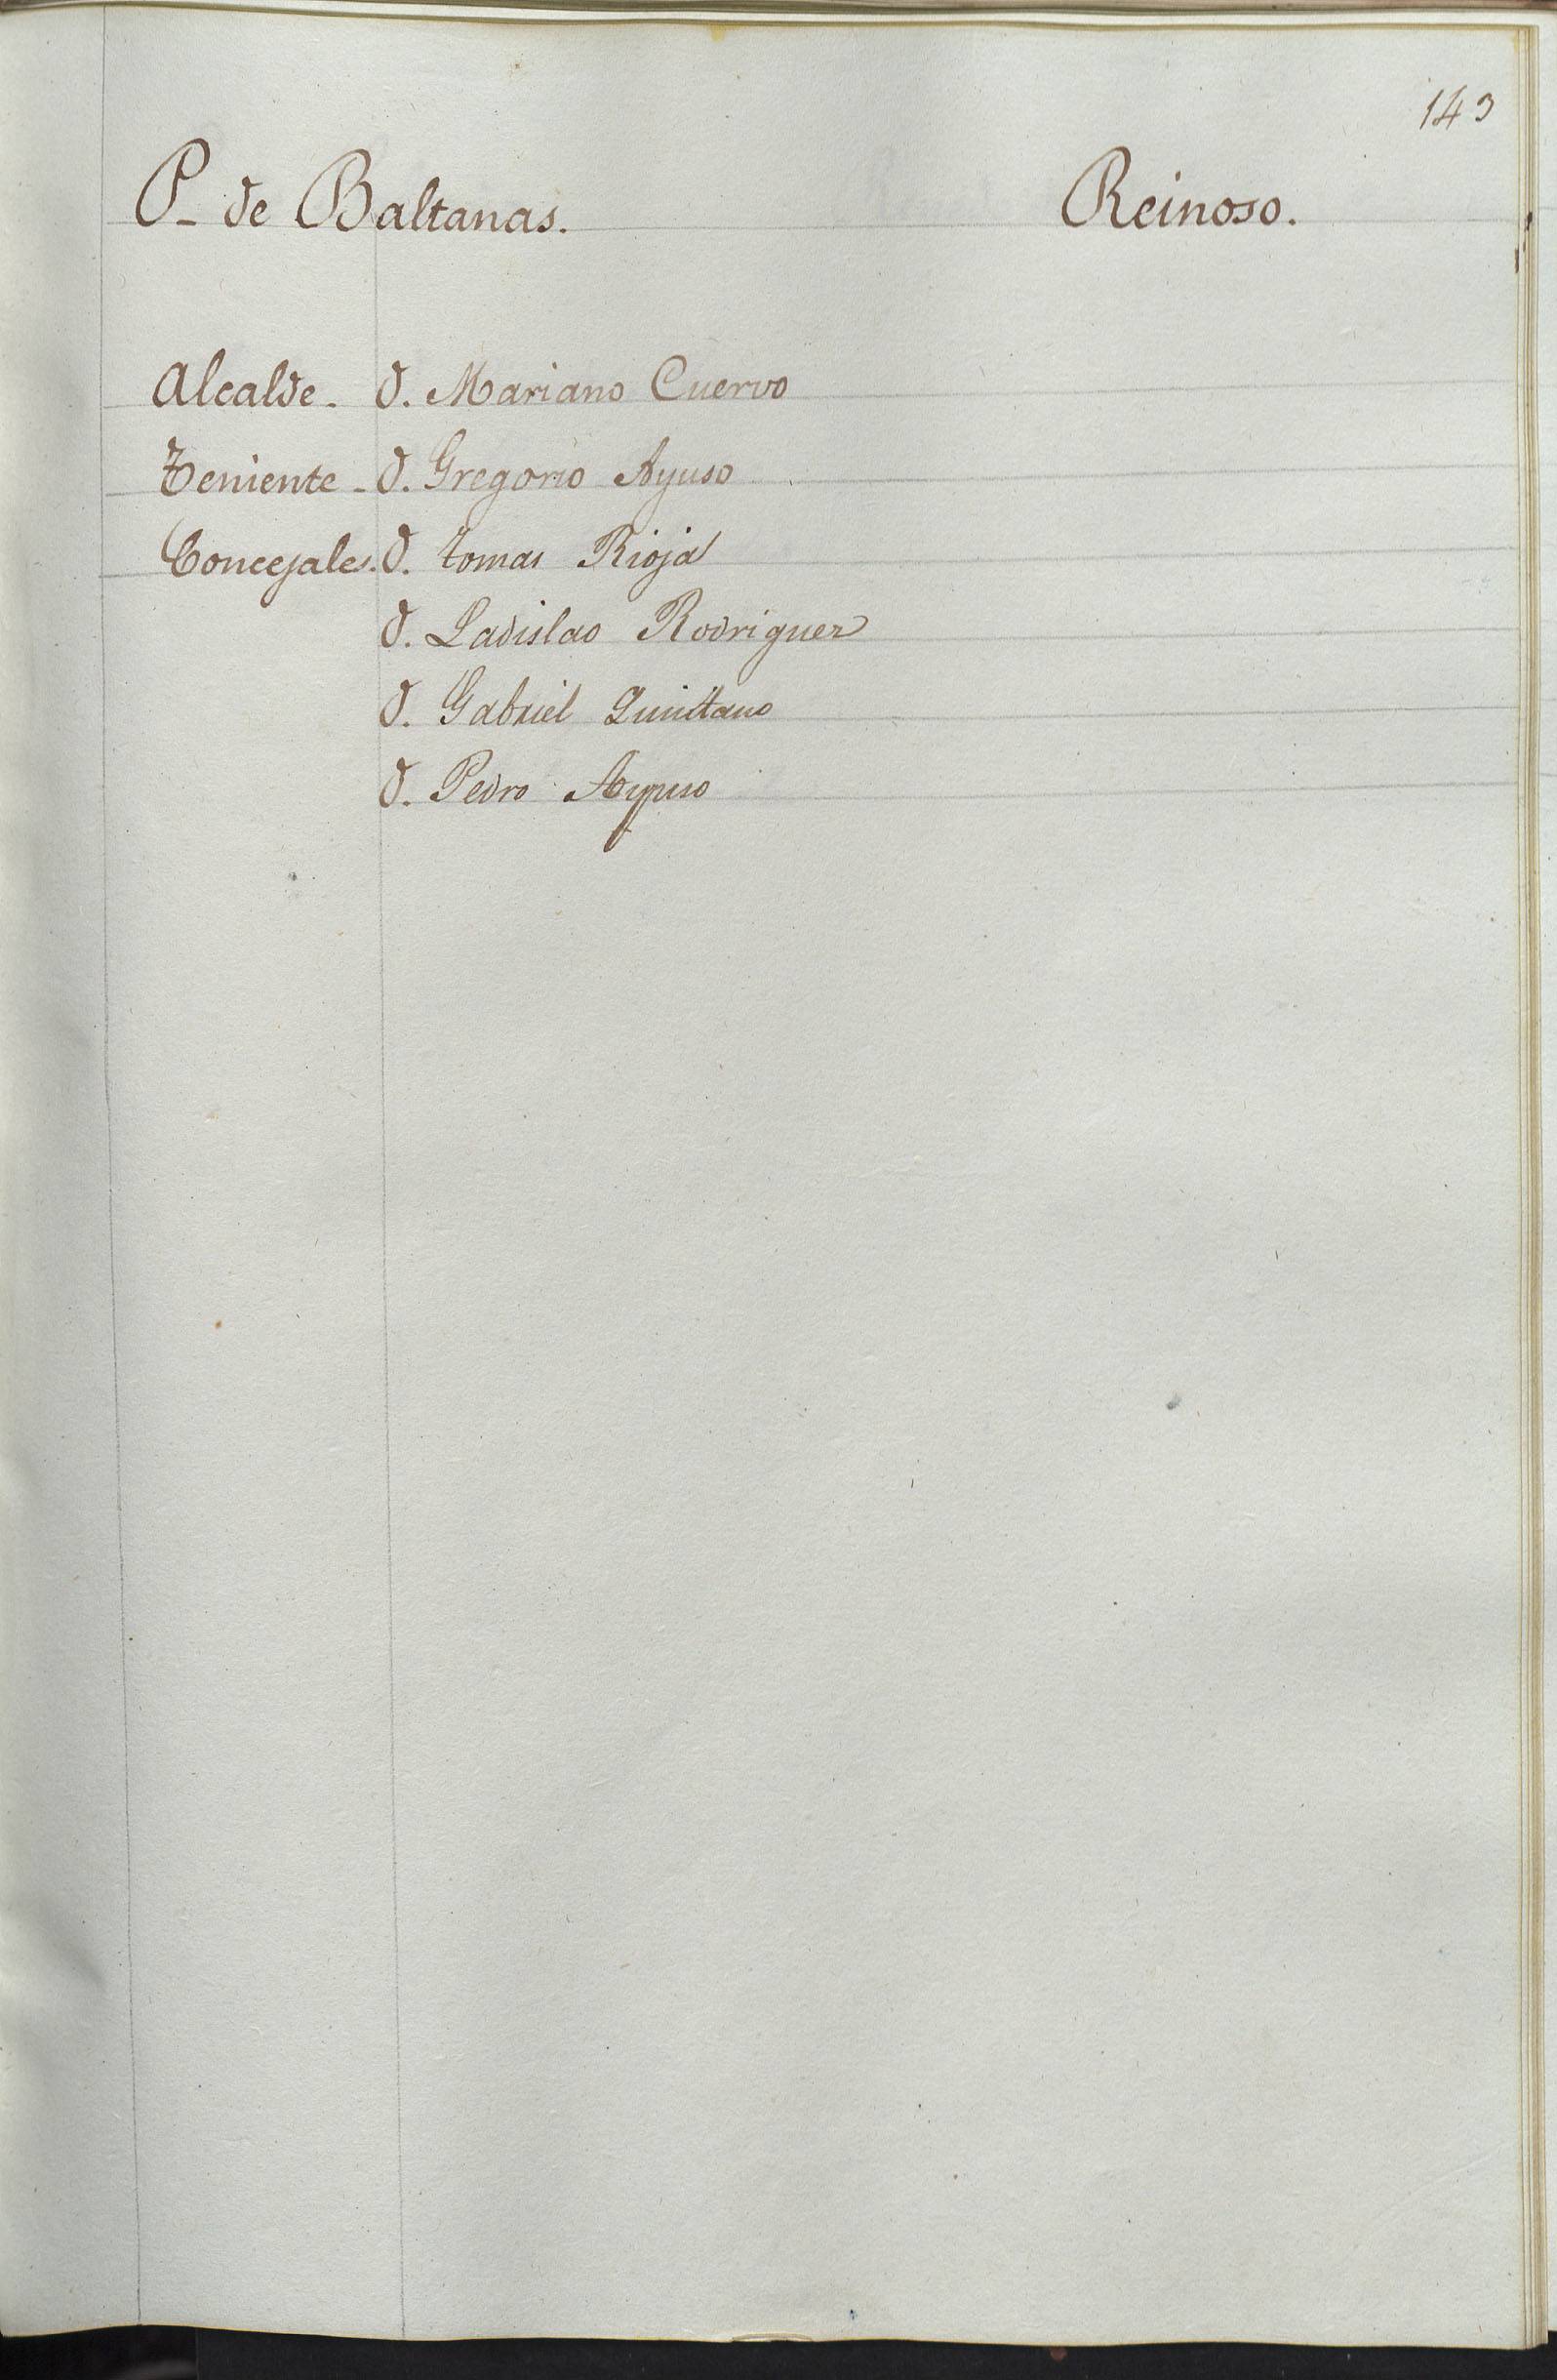 143
P. de Baltanas. Reinoso.
Alcalde. D. Mariano Cuervo
Teniente. D. Gregorio Ayuso
Concejales. D. Tomas Rioja
D. Ladislao Rodriguez
D. Gabriel Quintano
D. Pedro Ayuso